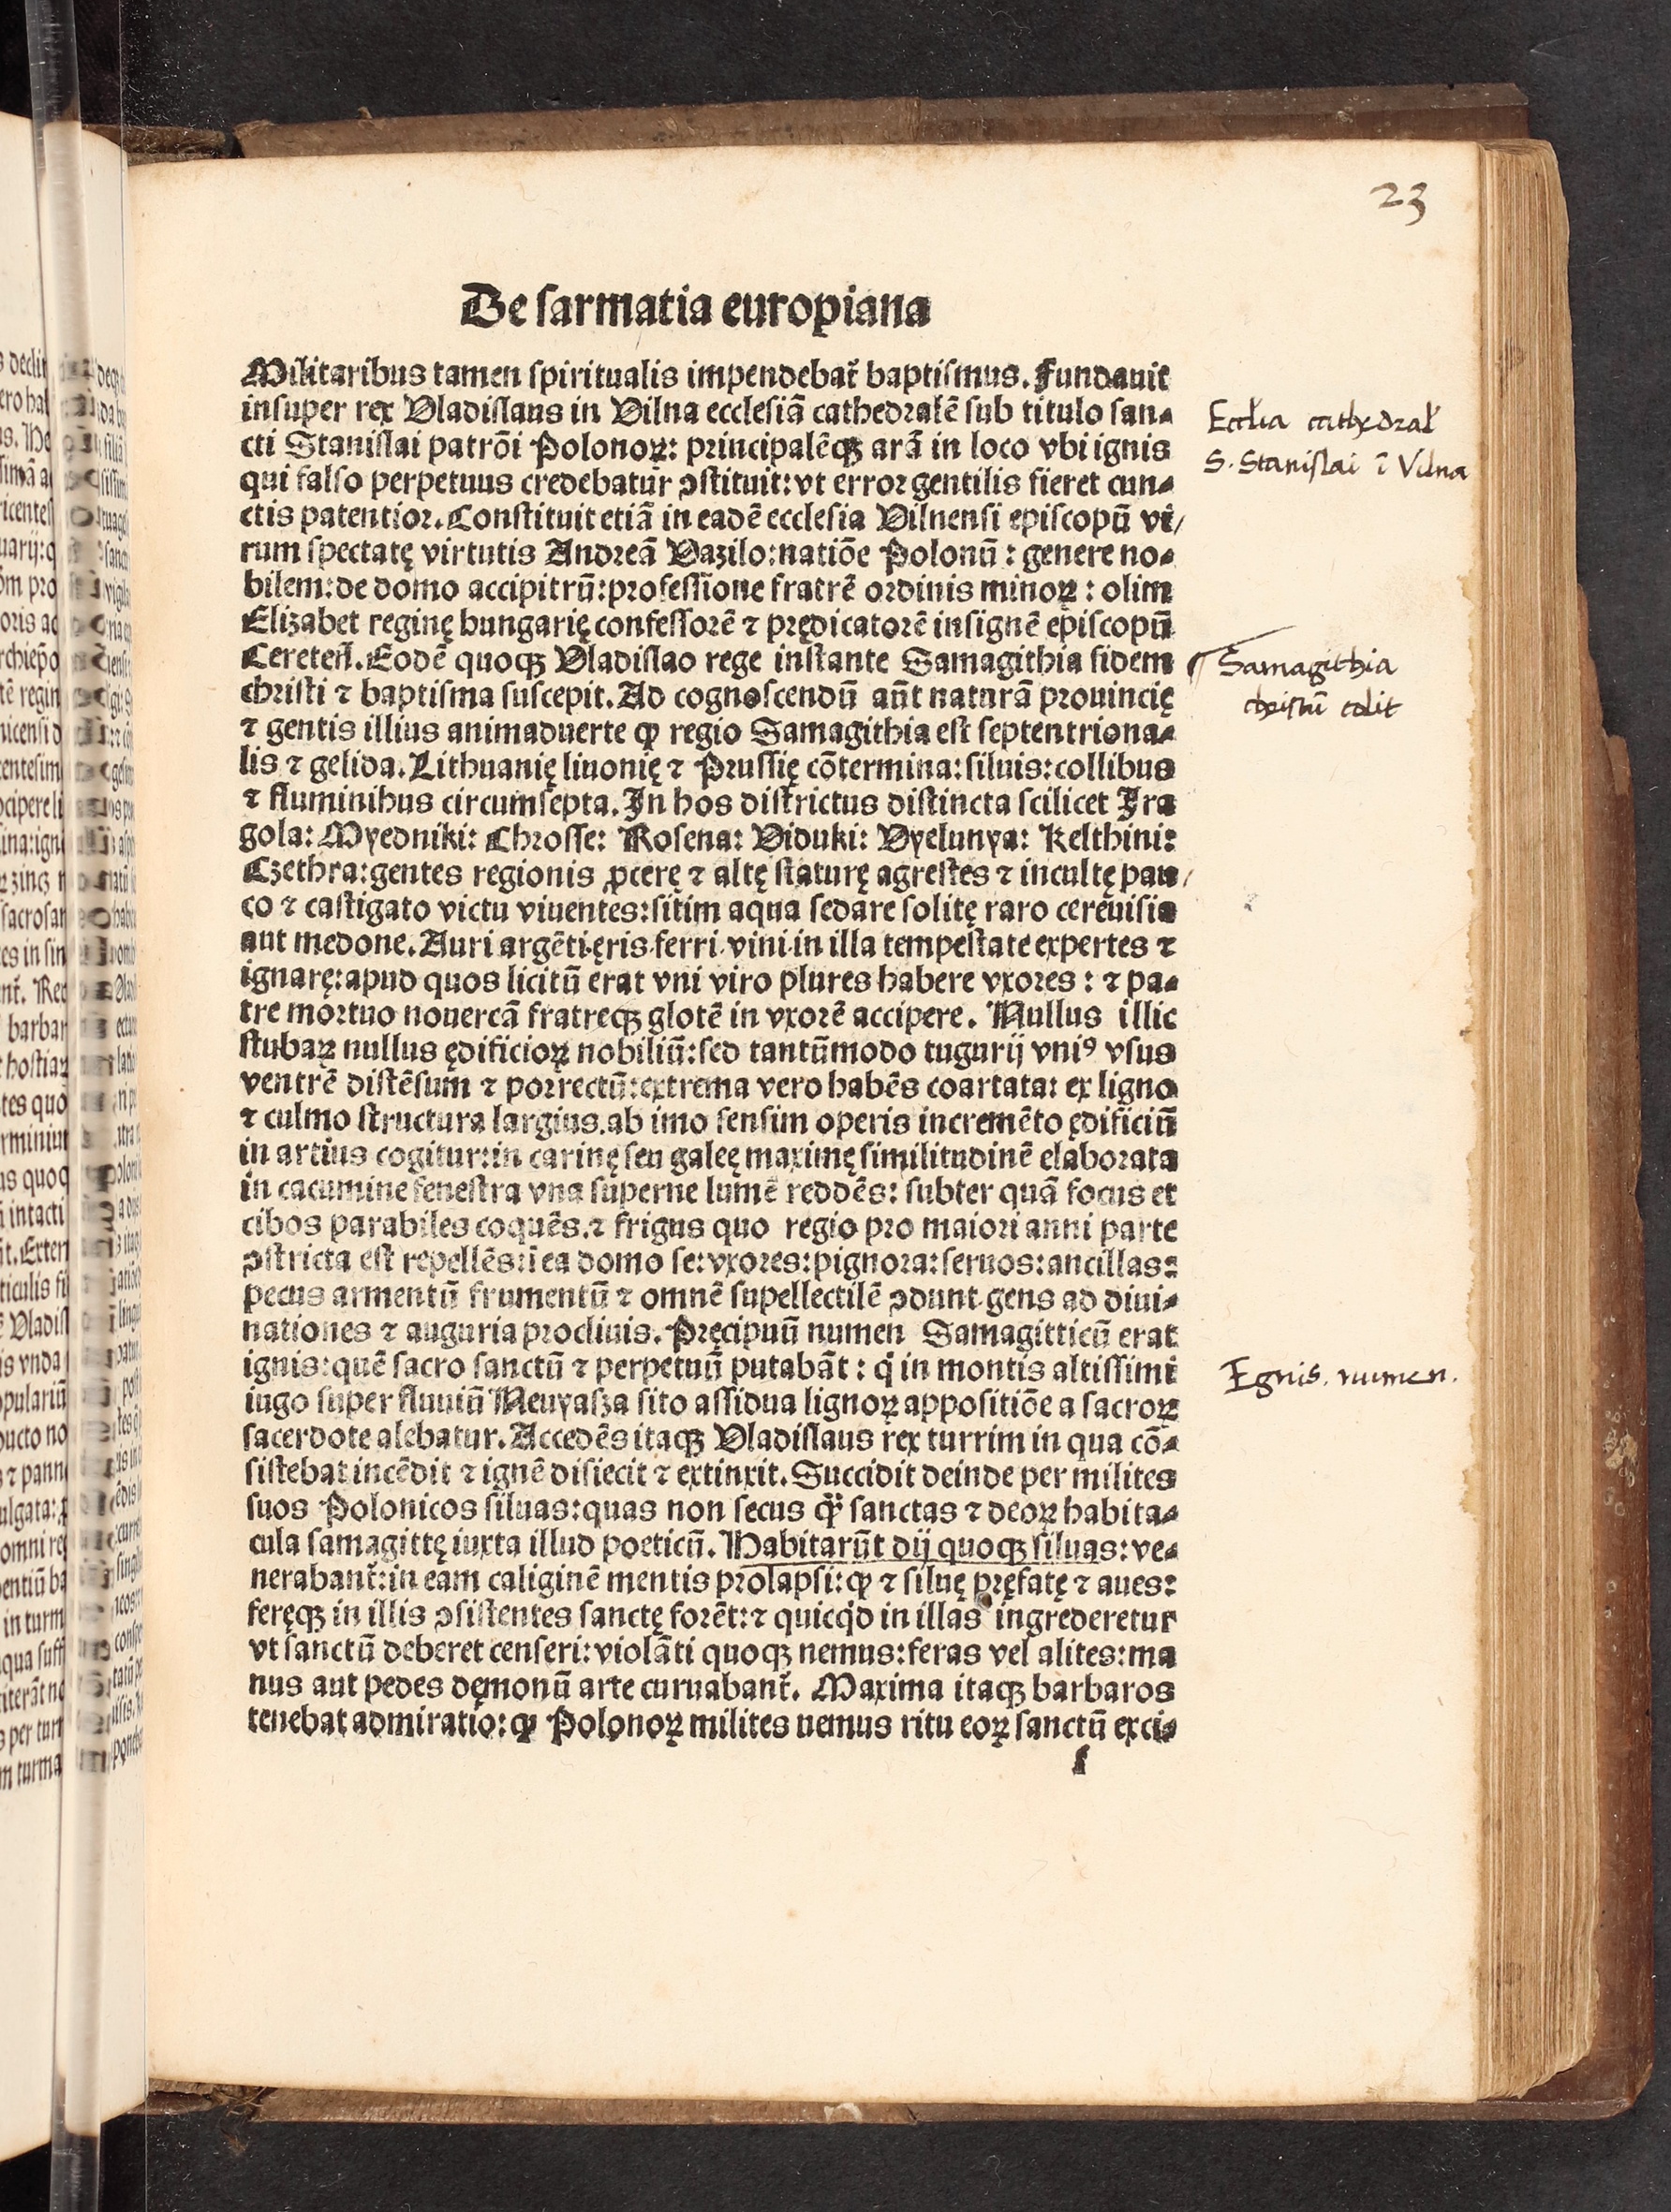 23
De ſarmatia europiana
Militaribus tamen ſpiritualis impendebat᷑ baptiſmus. Fundauit
inſuper rex Vladiſlaus in Vilna eccleſiā cathedralē ſub titulo ſan⸗
cti Staniſlai patrōi Polonoꝝ: principalēqꝫ arā in loco vbi ignis
qui falſo perpetuus credebatur ↄſtituit: vt error gentilis fieret cun⸗
ctis patentior. Conſtituit etiā in eadē eccleſia Vilnenſi epiſcopū vi/
rum ſpectatę virtutis Andreā Vazilo: natiōe Polonū: genere no⸗
bilem: de domo accipitrū: profeſſione fratrē ordinis minoꝝ: olim
Elizabet reginę hungarię confeſſorē ⁊ prędicatorē inſignē epiſcopū
Cereteñ. Eodē quoqꝫ Vladiſlao rege inſtante Samagithia fidem
chriſti ⁊ baptiſma ſuſcepit. Ad cognoſcendū aūt naturā prouincię
⁊ gentis illius animaduerte ꝙ regio Samagithia eſt ſeptentriona⸗
lis ⁊ gelida. Lithuanię liuonię ⁊ Pruſſię cōtermina: ſiluis: collibus
⁊ fluminibus circumſepta. In hos diſtrictus diſtincta ſcilicet Ira
gola: Myedniki: Chroſſe: Roſena: Viduki: Vyelunya: Kelthini:
Czethra: gentes regionis ꝓcerę ⁊ altę ſtaturę agreſtes ⁊ incultę pau/
co ⁊ caſtigato victu viuentes: ſitim aqua ſedare ſolitę raro cereuiſia
aut medone. Auri argēti. ęris. ferri. vini. in illa tempeſtate expertes ⁊
ignarę: apud quos licitū erat vni viro plures habere vxores: ⁊ pa⸗
tre mortuo nouercā fratreqꝫ glotē in vxorē accipere. Nullus illic
ſtubaꝝ nullus ędificioꝝ nobiliū: ſed tantūmodo tugurij vniꝰ vſus
ventrē diſtēſum ⁊ porrectū: extrema vero habēs coartata: ex ligno
⁊ culmo ſtructura largius. ab imo ſenſim operis incremēto ędificiū
in artius cogitur: in carinę ſeu galeę maximę ſimilitudinē elaborata
in cacumine feneſtra vna ſuperne lumē reddēs: ſubter quā focus et
cibos parabiles coquēs. ⁊ frigus quo regio pro maiori anni parte
ↄſtricta eſt repellēs: ī ea domo ſe: vxores: pignora: ſeruos: ancillas:
pecus armentū frumentū ⁊ omnē ſupellectilē ↄdunt. gens ad diui⸗
nationes ⁊ auguria procliuis. Pręcipuū numen Samagitticū erat
ignis: quē ſacro ſanctū ⁊ perpetuū putabāt: q̇ in montis altiſſimi
iugo ſuper fluuiū Neuyaſza ſito aſſidua lignoꝝ appoſitiōe a ſacroꝝ
ſacerdote alebatur. Accedēs itaqꝫ Vladiſlaus rex turrim in qua cō⸗
ſiſtebat incēdit ⁊ ignē diſiecit ⁊ extinxit. Succidit deinde per milites
ſuos Polonicos ſiluas: quas non ſecus qͣ̈ ſanctas ⁊ deoꝝ habita⸗
cula ſamagittę iuxta illud poeticū. Habitarūt dij quoqꝫ ſiluas: ve⸗
nerabant᷑: in eam caliginē mentis prolapſi: ꝙ ⁊ ſiluę pręfatę ⁊ aues:
feręqꝫ in illis ↄſiſtentes ſanctę forēt: ⁊ quicq̇d in illas ingrederetur
vt ſanctū deberet cenſeri: violāti quoqꝫ nemus: feras vel alites: ma
nus aut pedes dęmonū arte curuabant᷑. Maxima itaqꝫ barbaros
tenebat admiratio: ꝙ Polonoꝝ milites nemus ritu eoꝝ ſanctū exci⸗
f
Eccłia cathedrał
S. Staniſlai ī Vilna
Samagithia
chriſtū colit
Egnis. numen.